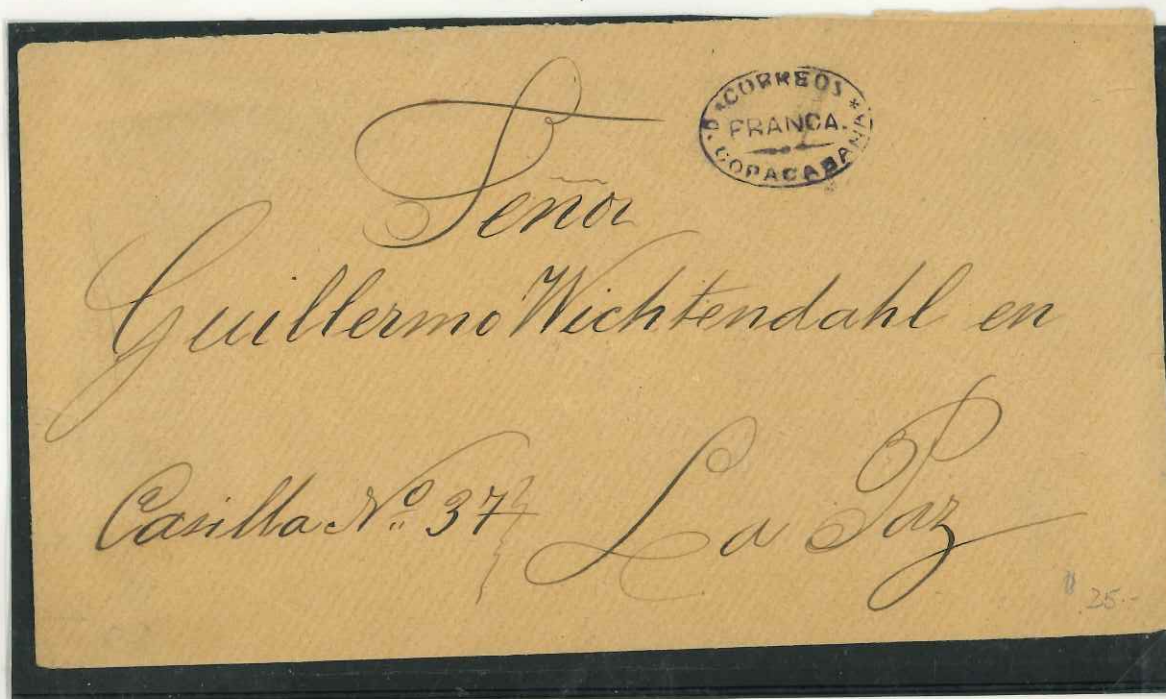 CORREOS
FRANCA.
COPACABANA
Señor
Guillermo Wichtendahl en
Casilla No. 37 La Paz
25.-